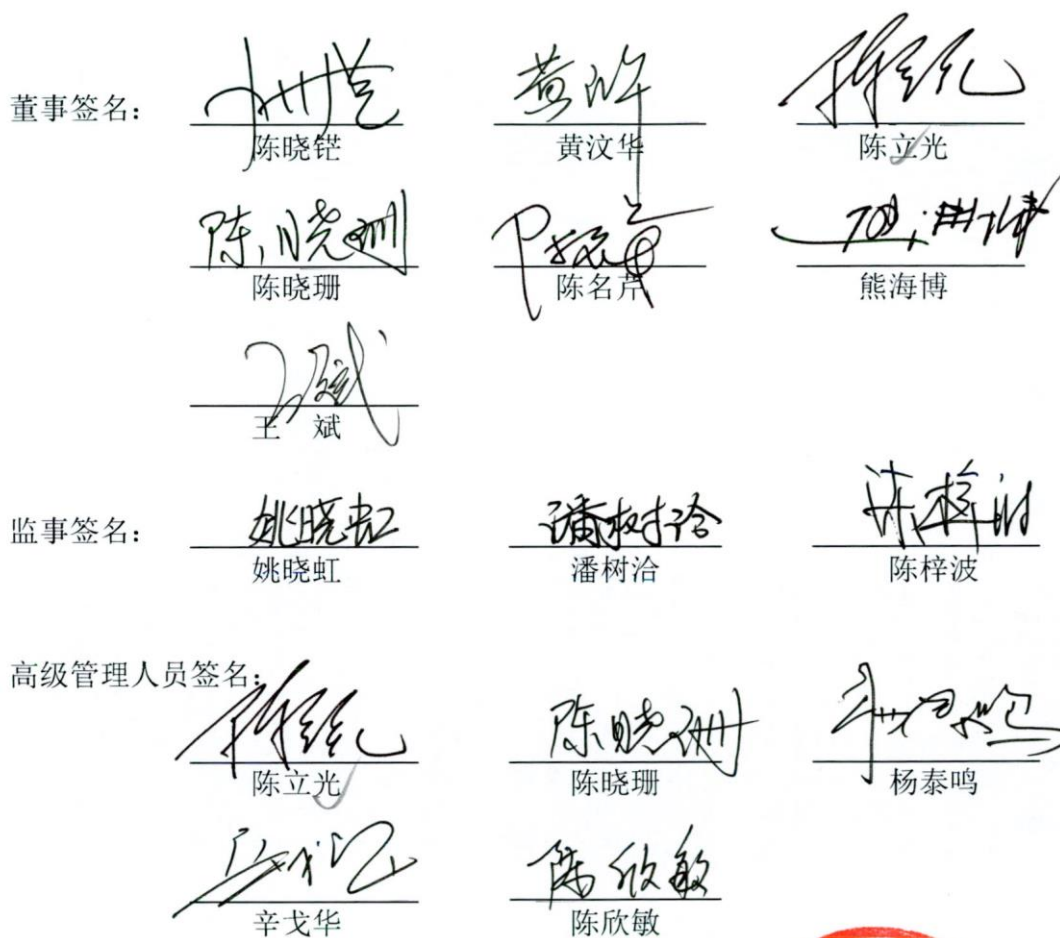 董事签名：
陈晓铓 黄汶华 陈立光
陈晓珊 陈名芹 熊海博
王 斌
监事签名：
姚晓虹 潘树洽 陈梓波
高级管理人员签名：
陈立光 陈晓珊 杨泰鸣
辛戈华 陈欣敏